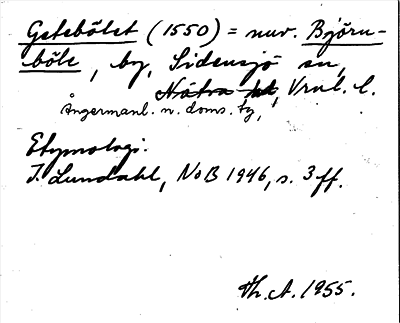 Getebölet (1550) = nuv. Björn-
böle, by, Sidensjö sn,
Nätra hd, Vrnl. l.
Ångermanl. n. doms. tg,
Etymologi.
I. Lundahl, NoB 1946, s. 3 ff.
Th. A. 1955.